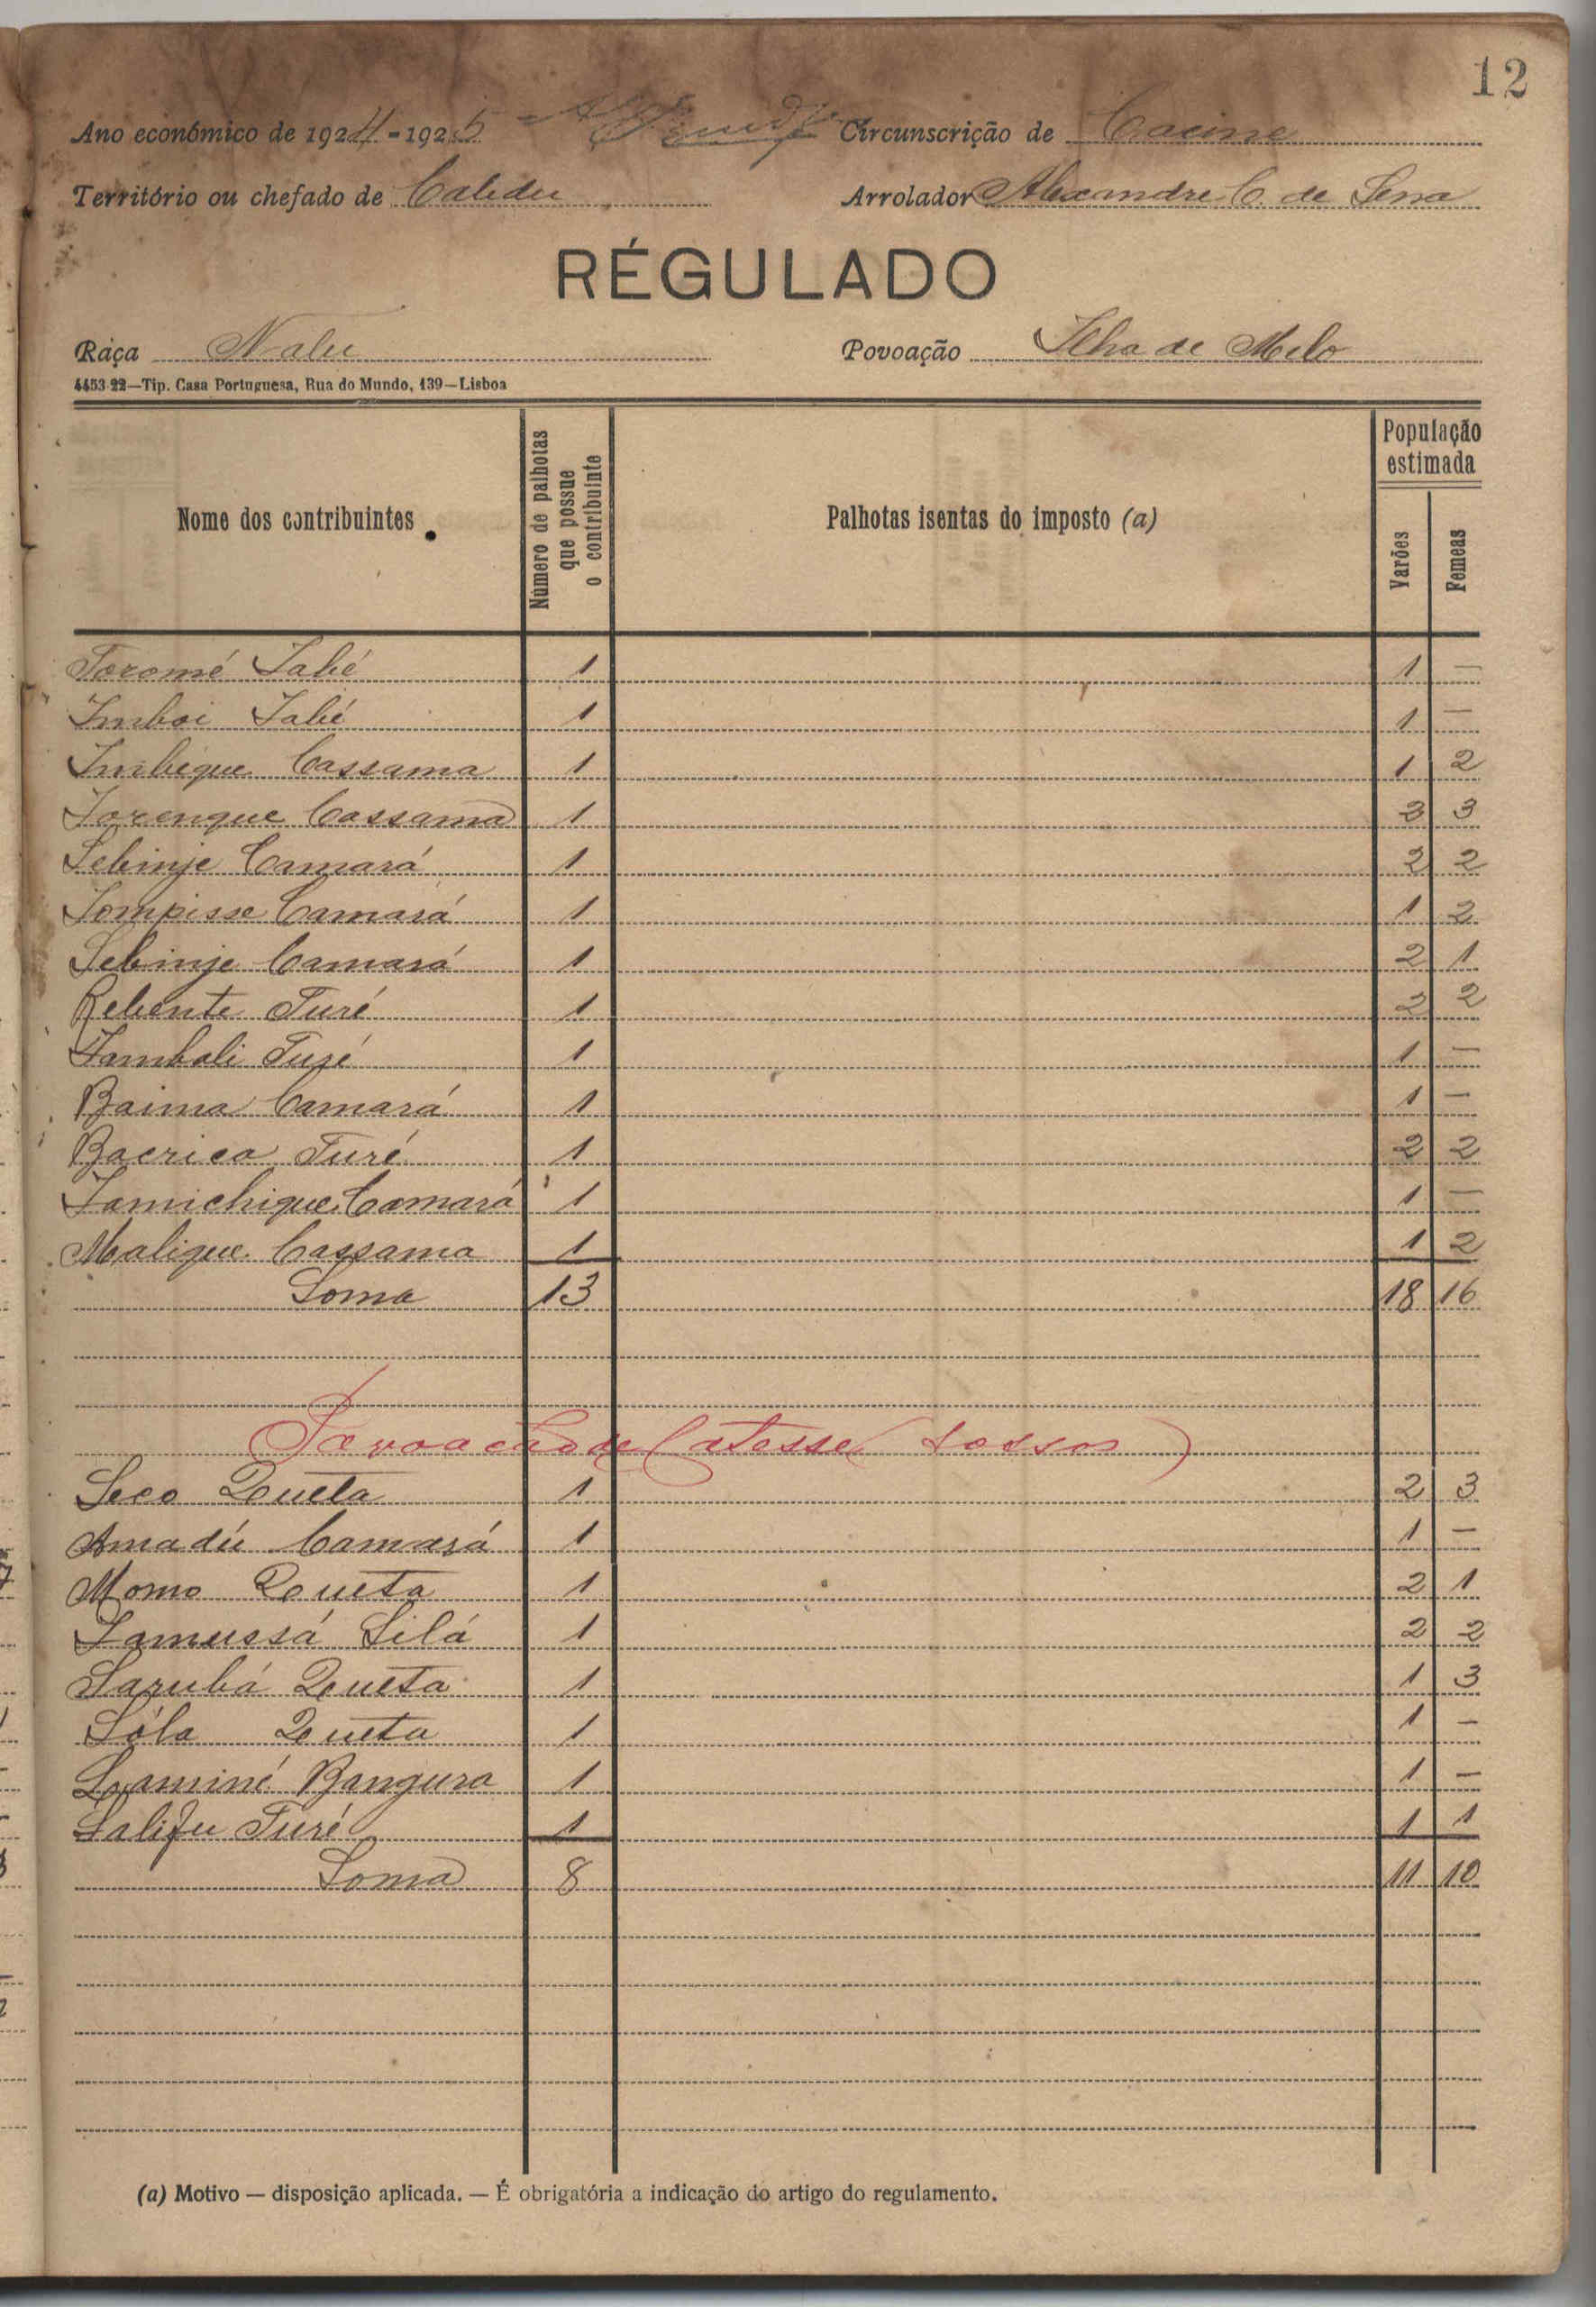 12
Ano económico de 1924-1925 Circunscrição de Cacine
Território ou chefado de Cabedu Arrolador Alexandre C. de Sena
RÉGULADO
Raça Nalu Povoação Ilha de Melo
4453-22—Tip. Casa Portuguesa, Rua do Mundo, 139—Lisboa
Nome dos contribuintes Número de palhotas que possue o contribuinte Palhotas isentas do imposto (a) População estimada Varões Femeas
Toromé Sabé 1 1 —
Imboi Sabé 1 1 —
Imbique Cassama 1 1 2
Jorenque Cassama 1 2 3
Sebinje Camará 1 2 2
Sompisse Camará 1 1 2
Sebinje Camará 1 2 1
Rebente Turé 1 2 2
Tambali Turé 1 1 —
Baima Camará 1 1 —
Bacrica Turé 1 2 2
Tamichique Camará 1 1 —
Malique Cassama 1 1 2
Soma 13 18 16
Povoação de Catesse (sossos)
Seco Queta 1 2 3
Amadú Camará 1 1 —
Momo Queta 1 2 1
Lamussá Silá 1 2 2
Sarubá Queta 1 1 3
Sóla Queta 1 1 —
Laminé Bangura 1 1 —
Salifu Turé 1 1 1
Soma 8 11 10
(a) Motivo — disposição aplicada. — É obrigatória a indicação do artigo do regulamento.